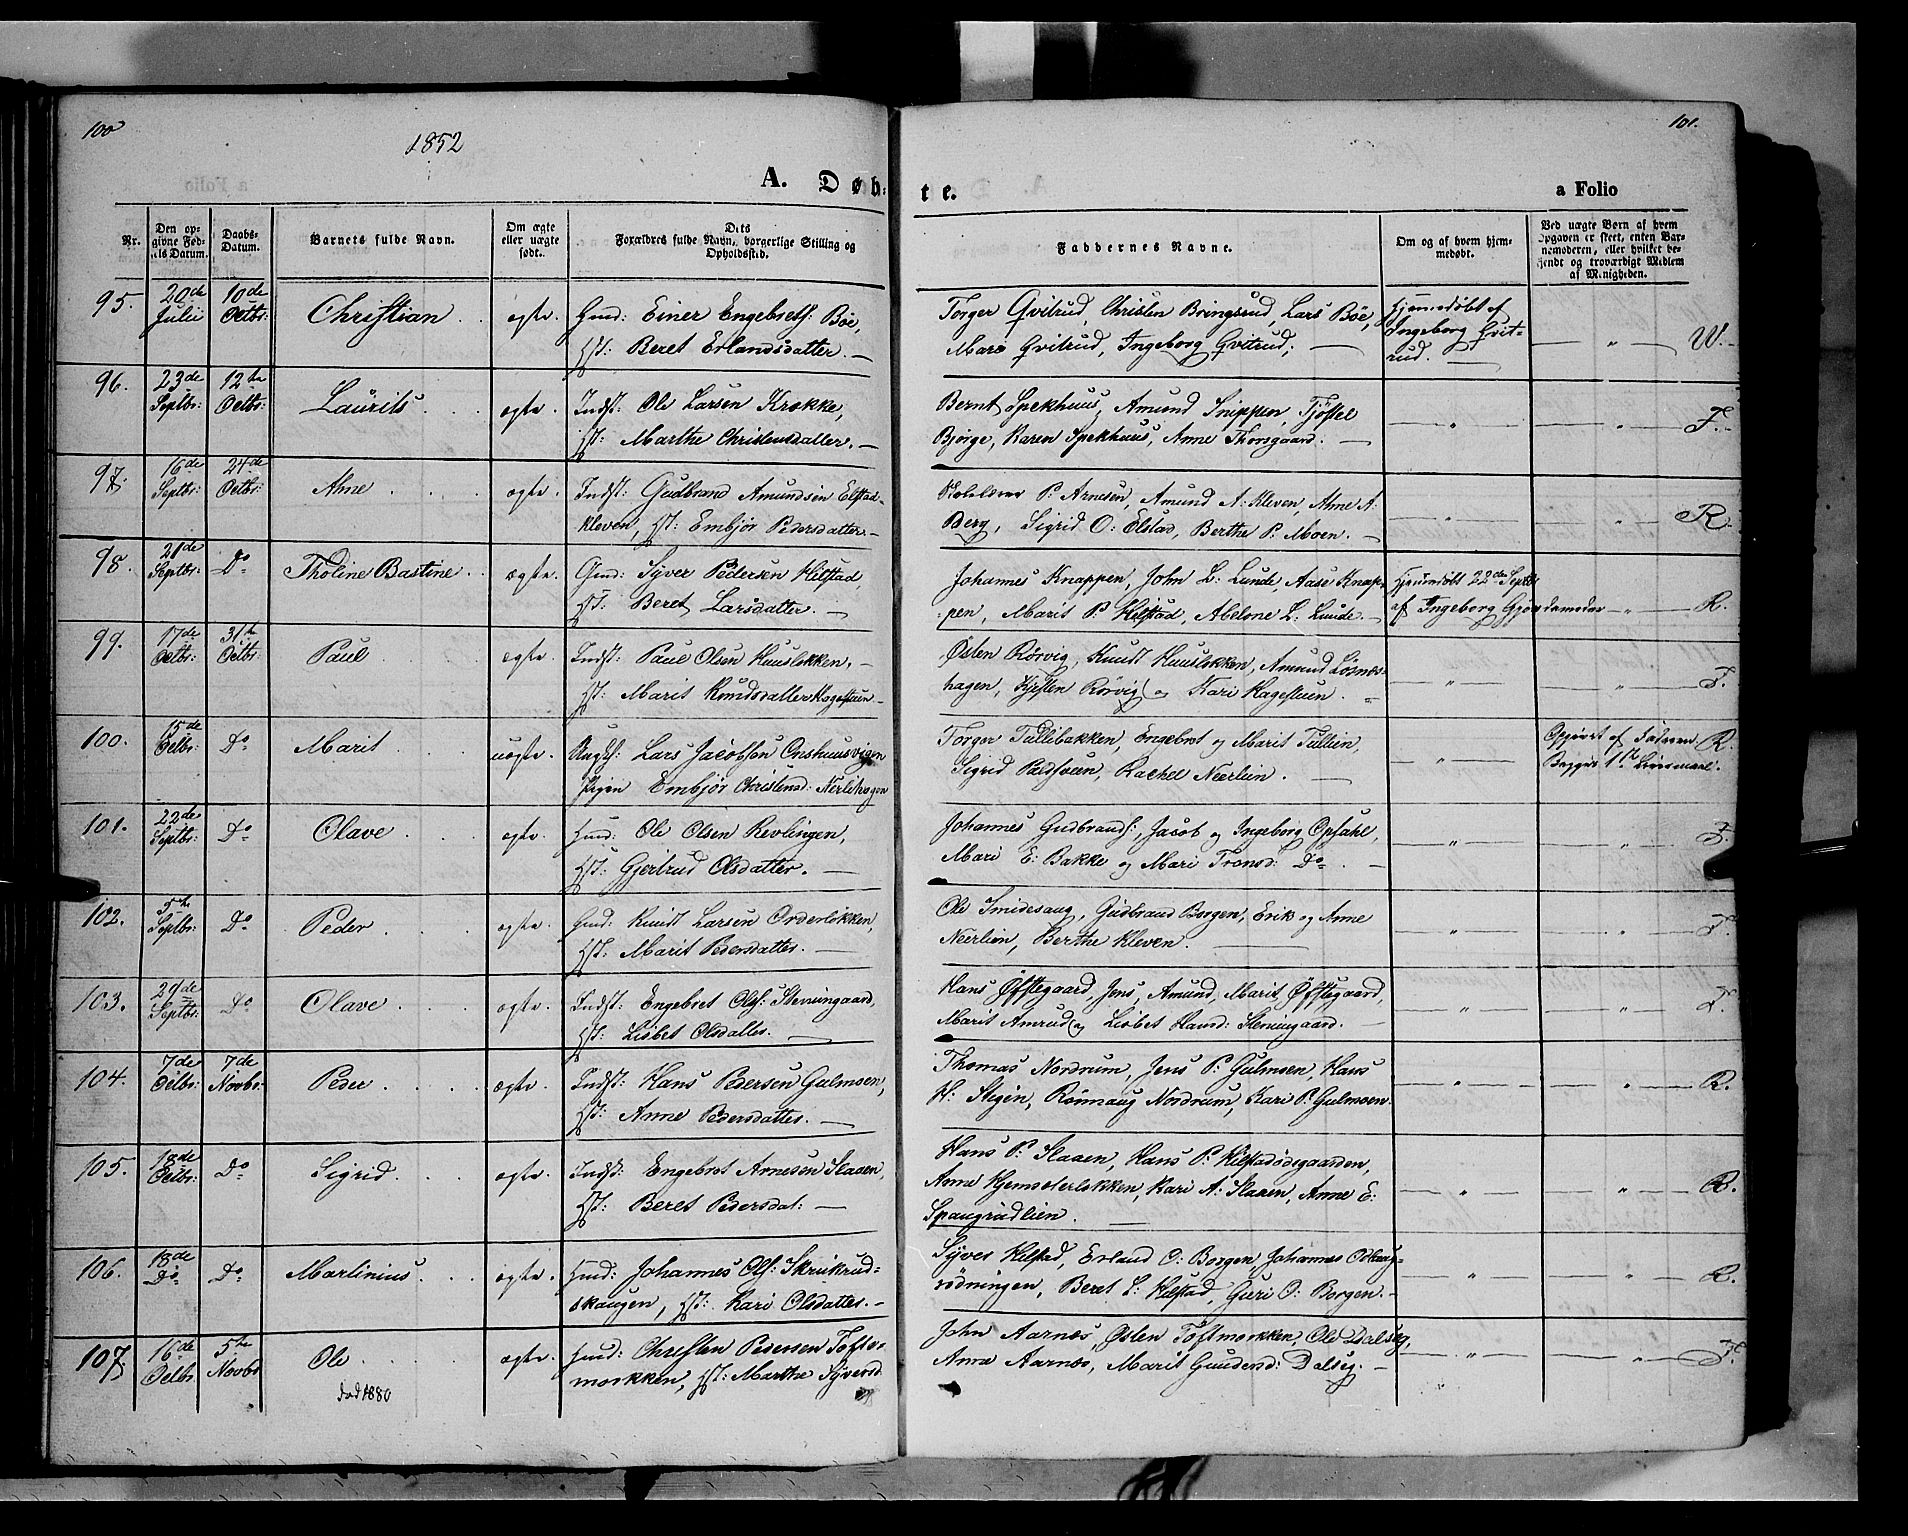 100
1852
A. Døb-
Nr.
Den op-
givne Fød-
sels Datum.
Daabs-
Datum.
Barnets fulde Navn.
Om ægte
eller uægte
født.
Dets
Forældres fulde Navn, borgerlige Stilling og
Opholdssted.
95. 20de Julii 10de Octbr: Christian ægte. Gmd: Einer Engebrets: Bøe,
Hst: Beret Erlandsdatter.
96. 23de Septbr: 12te Octbr: Laurits ægte. Indst: Ole Larsen Krøkke,
Hst: Marthe Christensdatter.
97. 16de Septbr: 24de Octbr: Ahne ægte. Indst: Gudbrand Amundsen Elstad-
kleven, Hst: Embjør Pedersdatter.
98. 21de Septbr: Do Tholine Bastine ægte. Gmd: Syver Pedersen Hilstad,
Hst: Beret Larsdatter.
99. 17de Octbr: 31te Octbr: Paul ægte. Indst: Paul Olsen Huusløkken.
Hst: Marit Knudsdatter Hagestuen
100. 15de Octbr: Do Marit uægte. Ungkl: Lars Jacobsen Onshuusvigen
Pigen Embjør Christensd: Nerlihagen
101. 22de Septbr: Do Olave ægte. Hmd: Ole Olsen Revlingen,
Hst: Gjertrud Olsdatter.
102. 5te Septbr: Do Peder ægte. Gmd: Knudt Larsen Orderløkken,
Hst: Marit Pedersdatter.
103. 29de Septbr: Do Olave ægte. Indst: Engebret Ols: Stenumgaard,
Hst: Lisbet Olsdatter.
104. 7de Octbr: 7de Novbr: Peder ægte. Indst: Hans Pedersen Gulmoen,
Hst: Anne Pedersdatter.
105. 18de Octbr: Do Sigrid ægte. Indst: Engebret Arnesen Slaaen,
Hst: Beret Pedersdat:
106. 18de Do Do Martinius ægte. Hmd: Johannes Ols: Skrukrud-
skaugen, Hst: Kari Olsdatter.
107. 16de Octbr: 5te Novbr Ole ægte. Hmd: Christen Pedersen Tofte-
morkken, Hst: Marthe Syversd
død 1880
101.
te.
a Folio
Faddernes Navne.
Om og af hvem hjem-
medøbt.
Ved uægte Børn af hvem
Opgaven er skeet, enten Bar-
nemoderen, eller hvilket be-
kjendt og troværdigt Medlem
af Menigheden.
Torger Qvitrud, Christen Bringsrud, Lars Bøe, Hjemmedøbt af
Mari Qvitrud, Ingeborg Qvitrud; Ingeborg Qvit-
rud. " W.
Bernt Spekhuus, Amund Snippen, Tjøstel
Bjørge, Karen Spekhuus, Anne Thorsgaard. " " F.
P: Arnesen, Amund A: Kleven, Ahne A:
Berg, Sigrid O: Elstad, Berthe P: Moen. " " R.
Johannes Knappen, John L: Lunde, Aase Knap- Hjemmedøbt 22de Septbr
pen, Marit P: Hilstad, Abelone L: Lunde. af Ingeborg Gjordemoder " R.
Østen Rørvig, Knudt Huusløkken, Amund Løsnæs-
hagen, Kjersten Rørvig og Kari Hagestuen. " " F.
Torger Tullibakken, Engebret og Marit Tullien, Opgivet af Faderen R.
Sigrid Paldsveen, Rachel Neerlien. " Begges 1ste Leiermaal.
Johannes Gudbrands:, Jacob og Ingeborg Opsahl,
Mari E: Bakke og Mari Tronsd: Do. " " F.
Ole Smidesaug, Gudbrand Borgen, Erik og Anne
Neerlien, Berthe Kleven. " " F.
Hans Øfstegaard, Jens, Amund, Marit Øfstegaard,
Marit Amrud og Lisbet Hansd: Stenumgaard. " "
Thomas Nordrum, Jens P: Gulmoen, Hans
H: Stigen, Rønnaug Nordrum, Kari P: Gulmoen. " " R.
Hans P: Slaaen, Hans P: Hilstadødegaarden,
Anne Hjemseterløkken, Kari A: Slaaen, Anne E: " " R.
Spangrudlien.
Syver Hilstad, Erland O: Borgen, Johannes
rødningen, Beret L: Hilstad, Guri O: Borgen. " " R.
John Aarnæs, Østen Toftmorkken, Ole Dalseg,
Anne Aarnæs, Marit Gundersd: Dalseg. " " F.